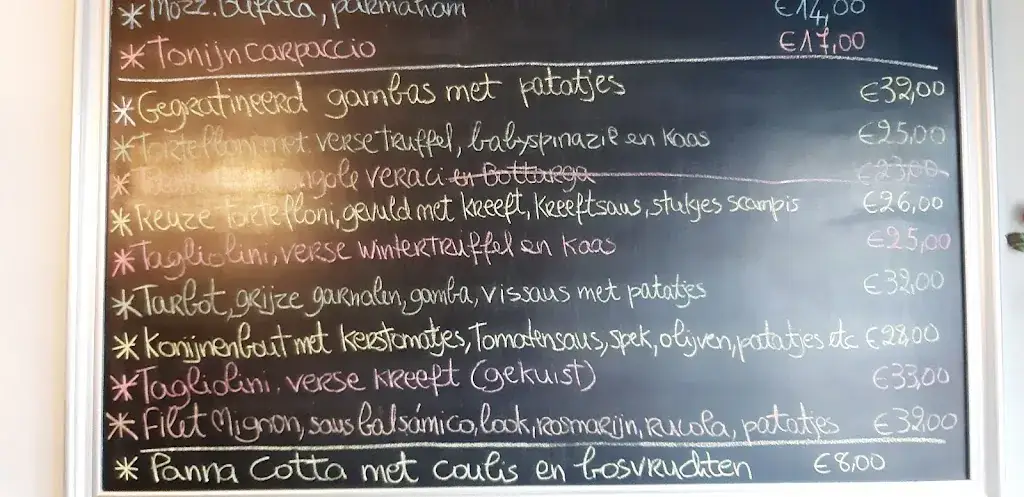 * Mozz. Bufala, parmaham €14,00
* Tonijn carpaccio €17,00
* Gegratineerd gambas met patatjes €32,00
* Tortelloni met verse truffel, babyspinazie en kaas €25,00
* vongole veraci en Bottarga €23,00
* Reuze tortelloni, gevuld met kreeft, kreeftsaus, stukjes scampis €26,00
* Tagliolini, verse wintertruffel en kaas €25,00
* Tarbot, grijze garnalen, gamba, vissaus met patatjes €32,00
* Konijnenbout met kerstomatjes, Tomatensaus, spek, olijven, patatjes etc €28,00
* Tagliolini. verse kreeft (gekuist) €33,00
* Filet Mignon, saus balsámico, look, rosmarijn, rucola, patatjes €32,00
* Panna Cotta met coulis en bosvruchten €8,00